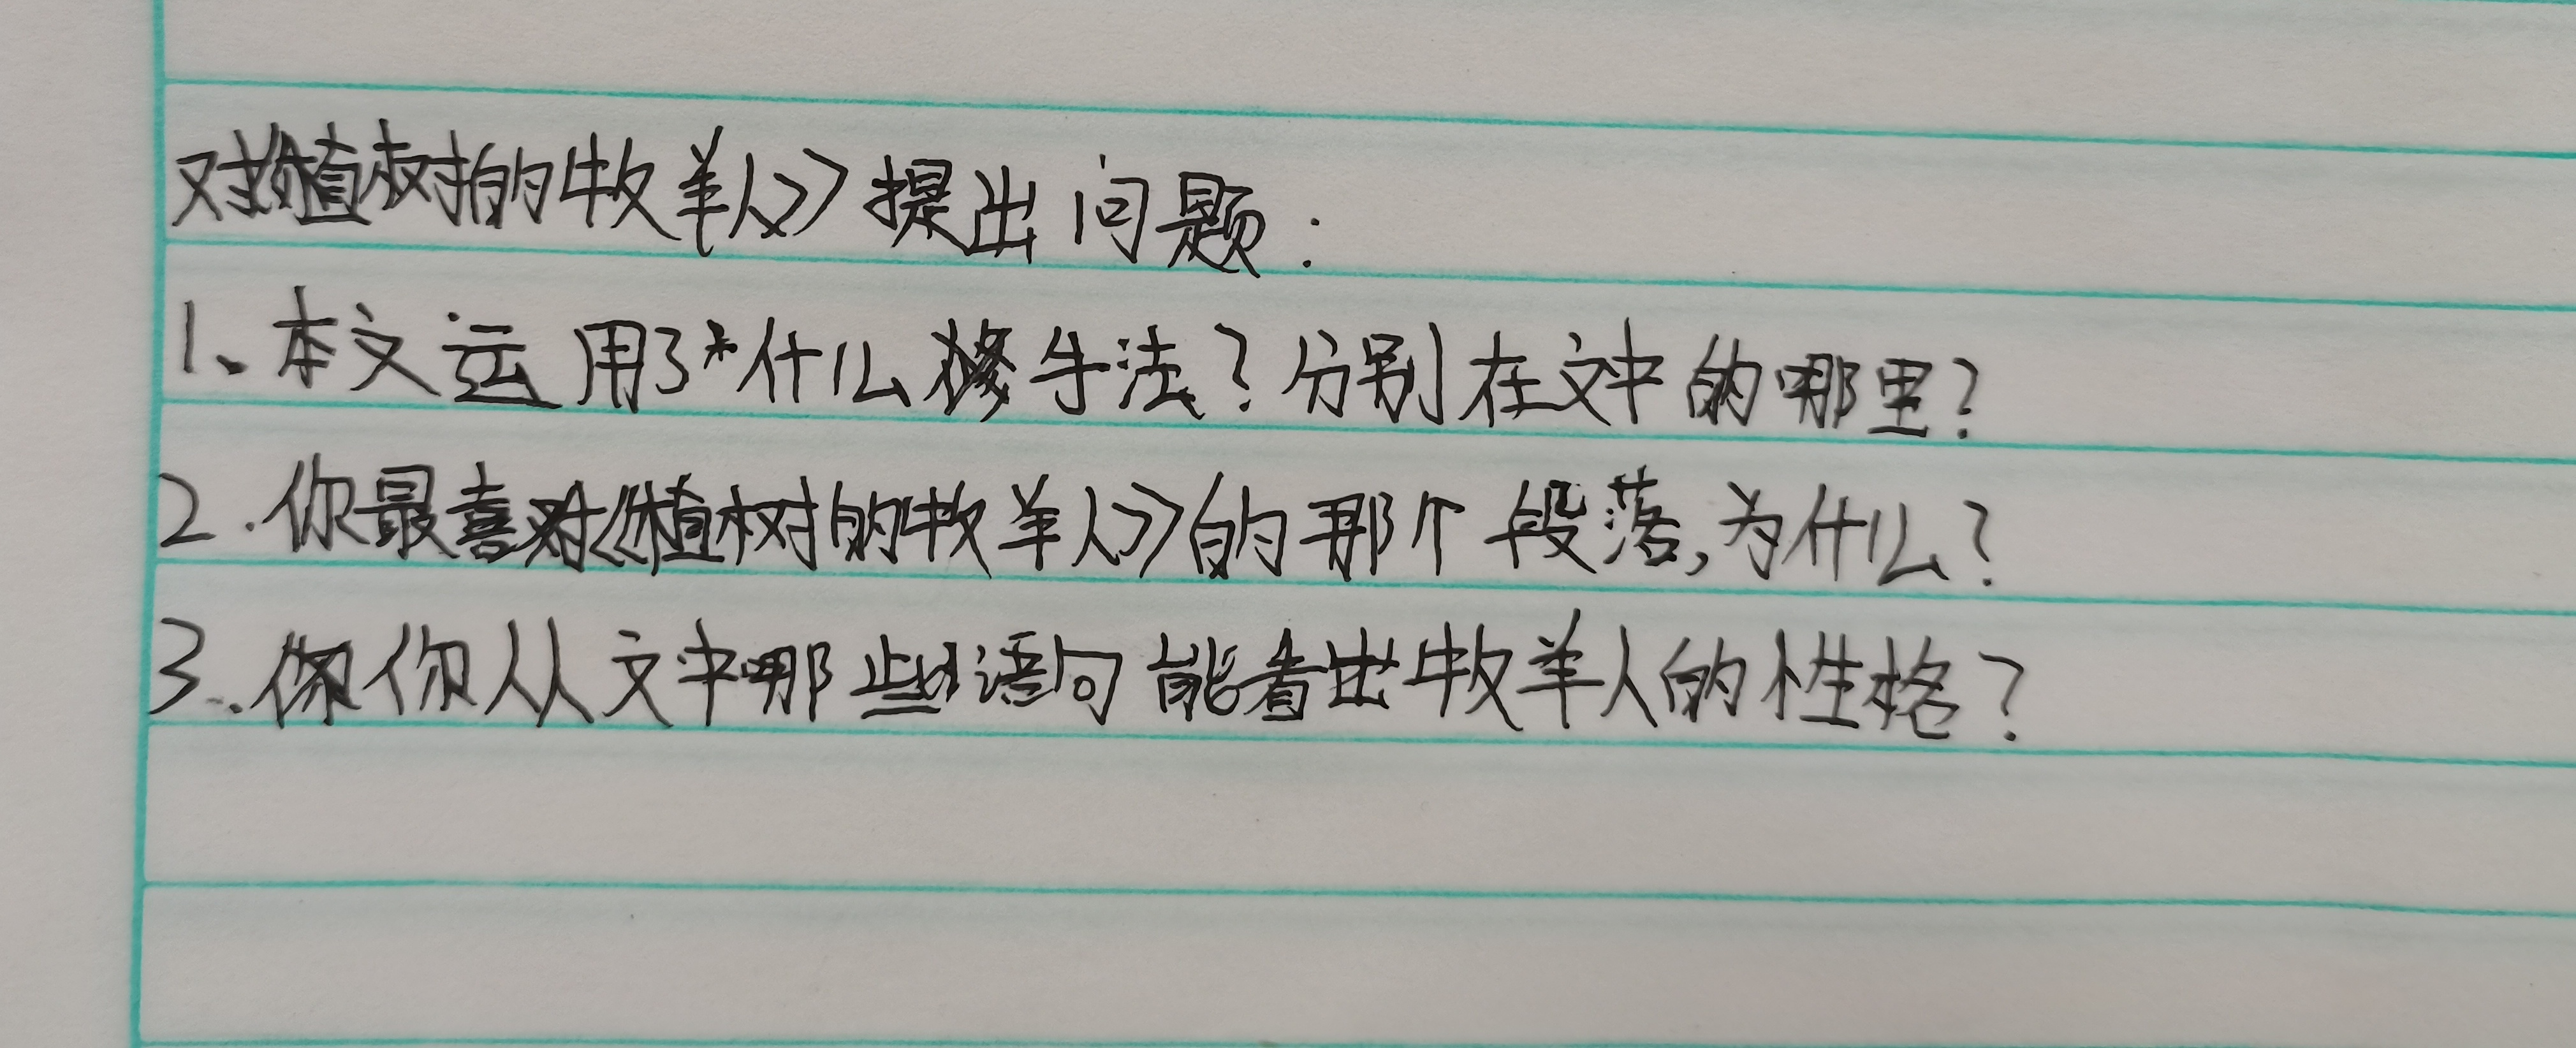 对《植树的牧羊人》提出问题：
1、本文运用了什么修手法？分别在文中的哪里？
2.你最喜对《植树的牧羊人》的那个段落，为什么？
3.你从文中哪些语句能看出牧羊人的性格？